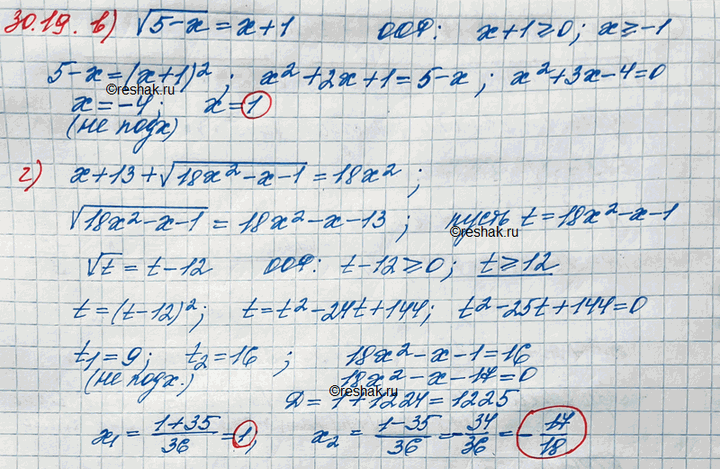 30.19. в) √(5-x) = x+1 ООФ: x+1≥0; x≥-1
5-x=(x+1)²; x²+2x+1=5-x; x²+3x-4=0
©reshak.ru
x=-4; x=1
(не подх)
г) x+13+√(18x²-x-1)=18x²;
√(18x²-x-1)=18x²-x-13; пусть t=18x²-x-1
©reshak.ru
√t=t-12 ООФ: t-12≥0; t≥12
t=(t-12)²; t=t²-24t+144; t²-25t+144=0
t₁=9; t₂=16; 18x²-x-1=16
(не подх.) 18x²-x-17=0
©reshak.ru
Д=1+1224=1225
x₁=(1+35)/36=1, x₂=(1-35)/36=-34/36=-17/18